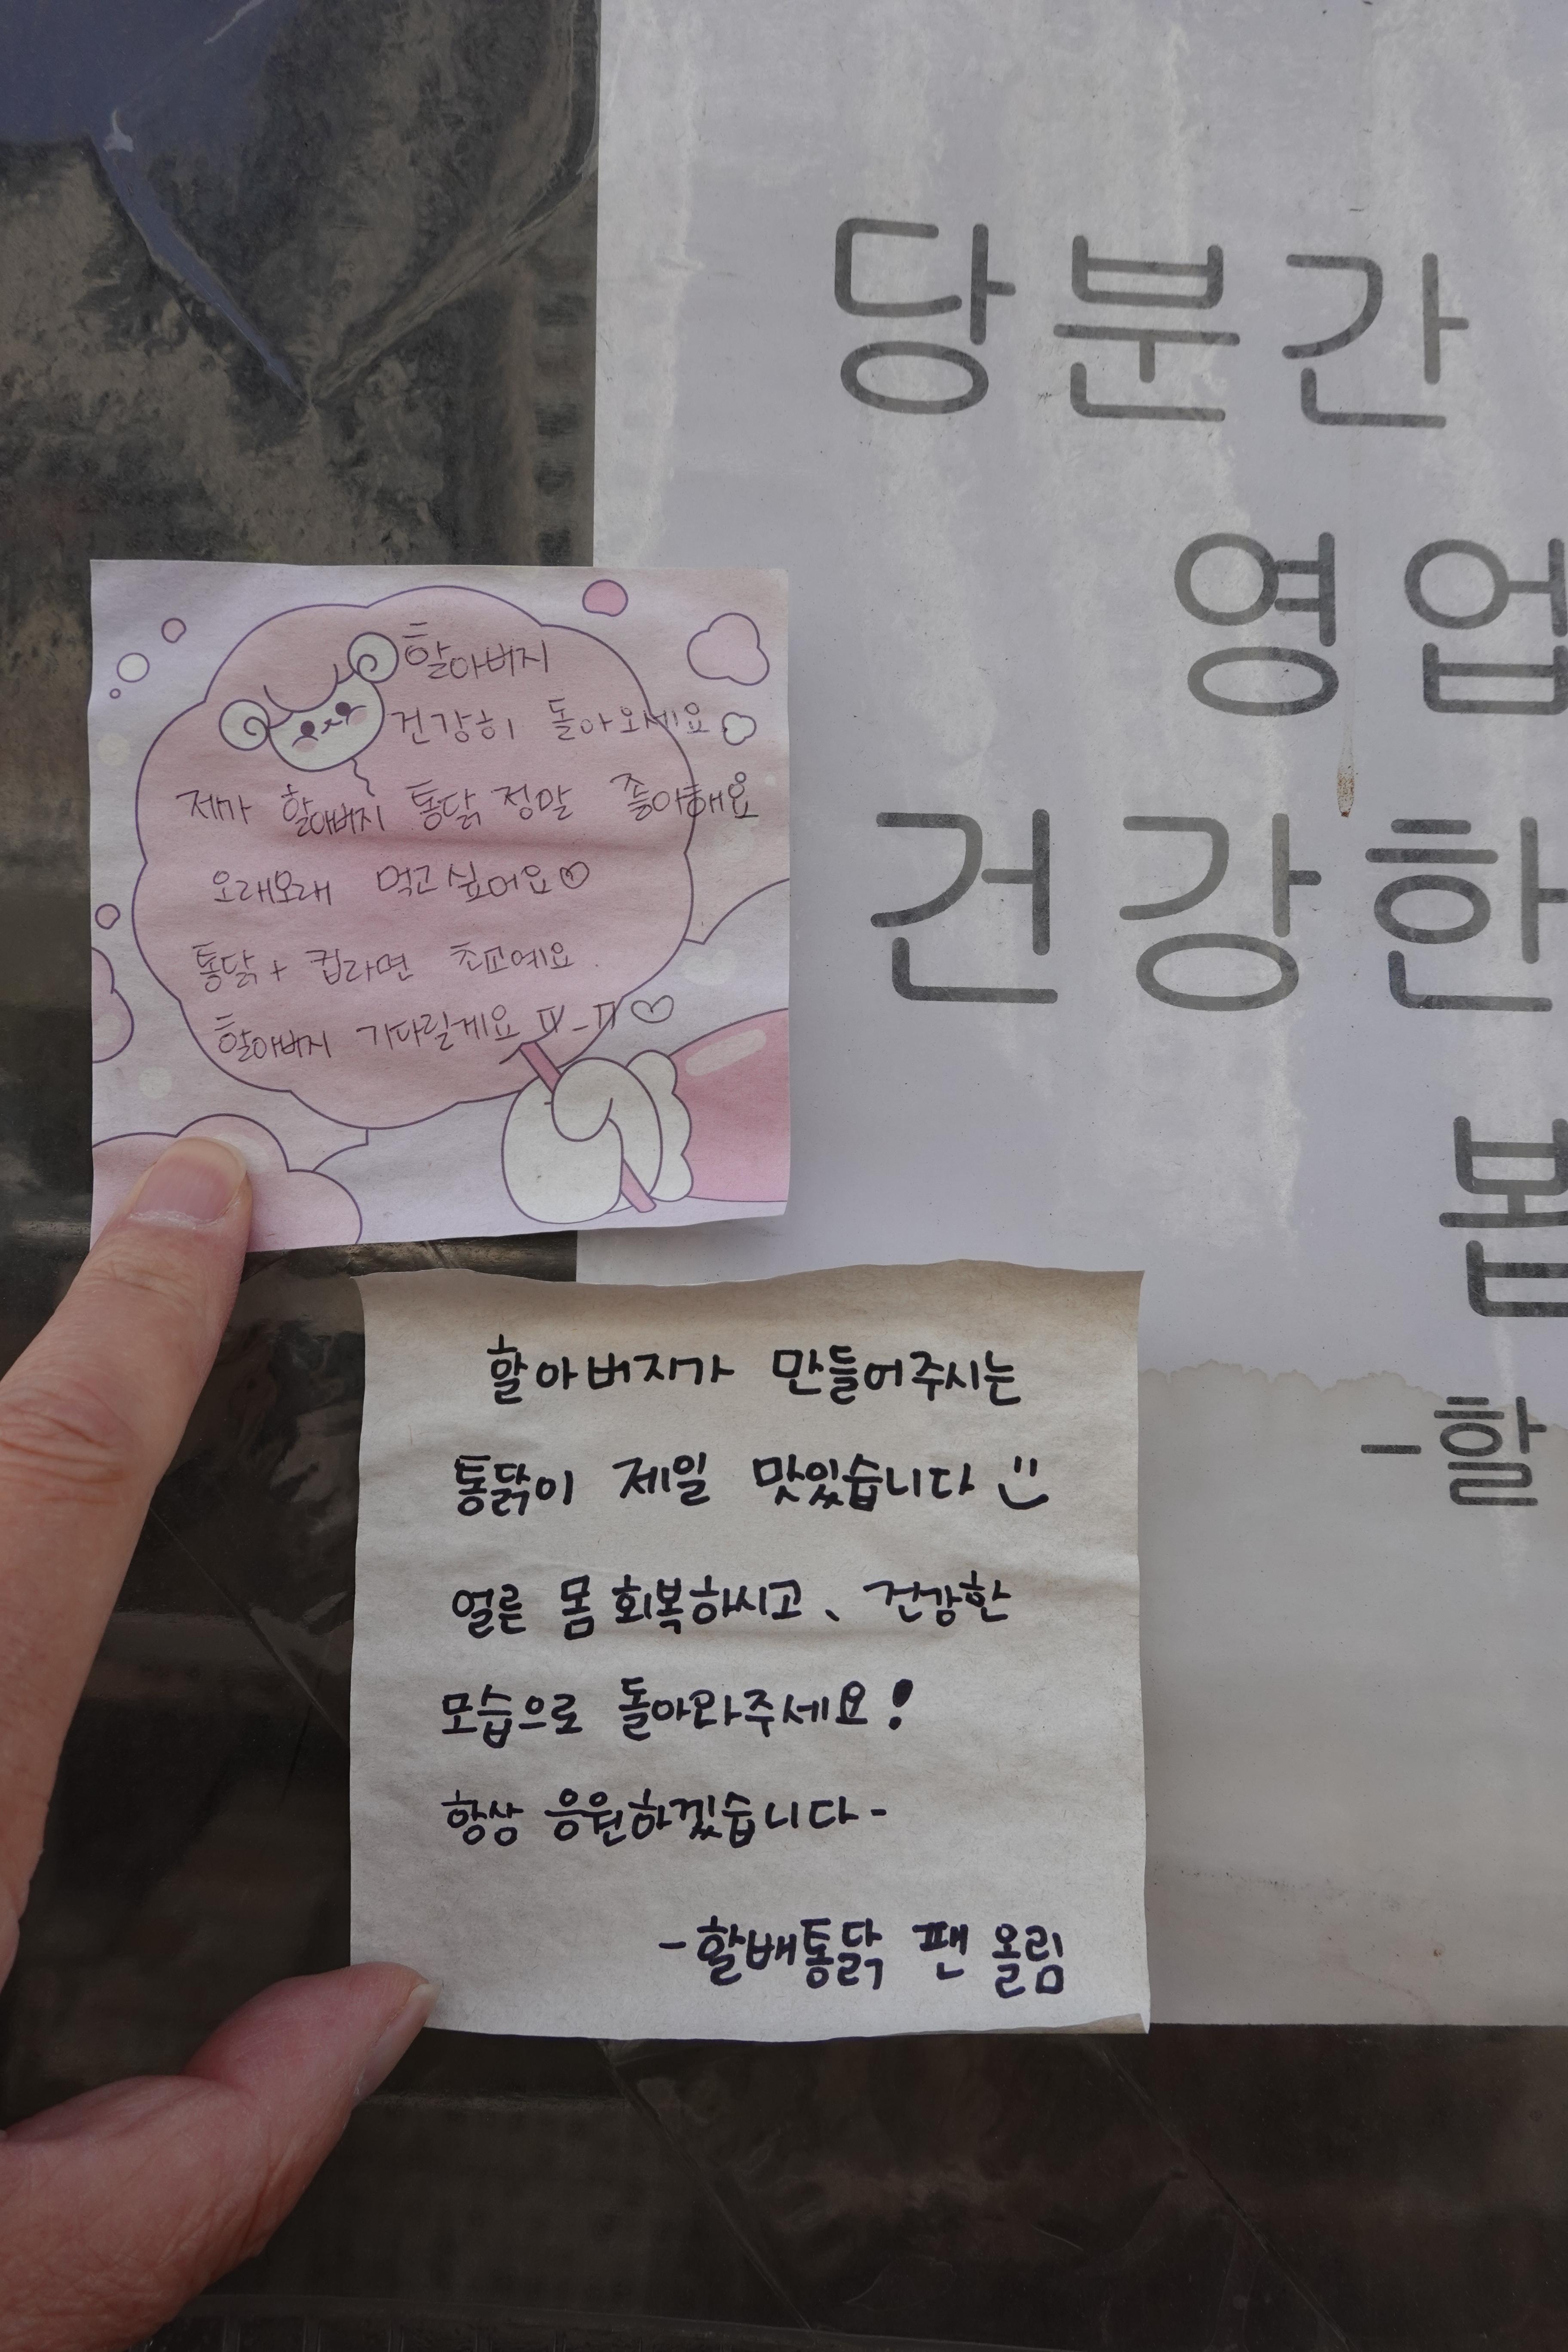 당분간
영업
건강한
본
-할
할아버지
건강히 돌아오세요
제가 할아버지 통닭 정말 좋아해요
오래오래 먹고싶어요♡
통닭 + 컵라면 최고예요.
할아버지 기다릴게요 ㅠ_ㅠ♡
할아버지가 만들어주시는
통닭이 제일 맛있습니다 :)
얼른 몸 회복하시고、 건강한
모습으로 돌아와주세요!
항상 응원하겠습니다-
-할배통닭 팬 올림